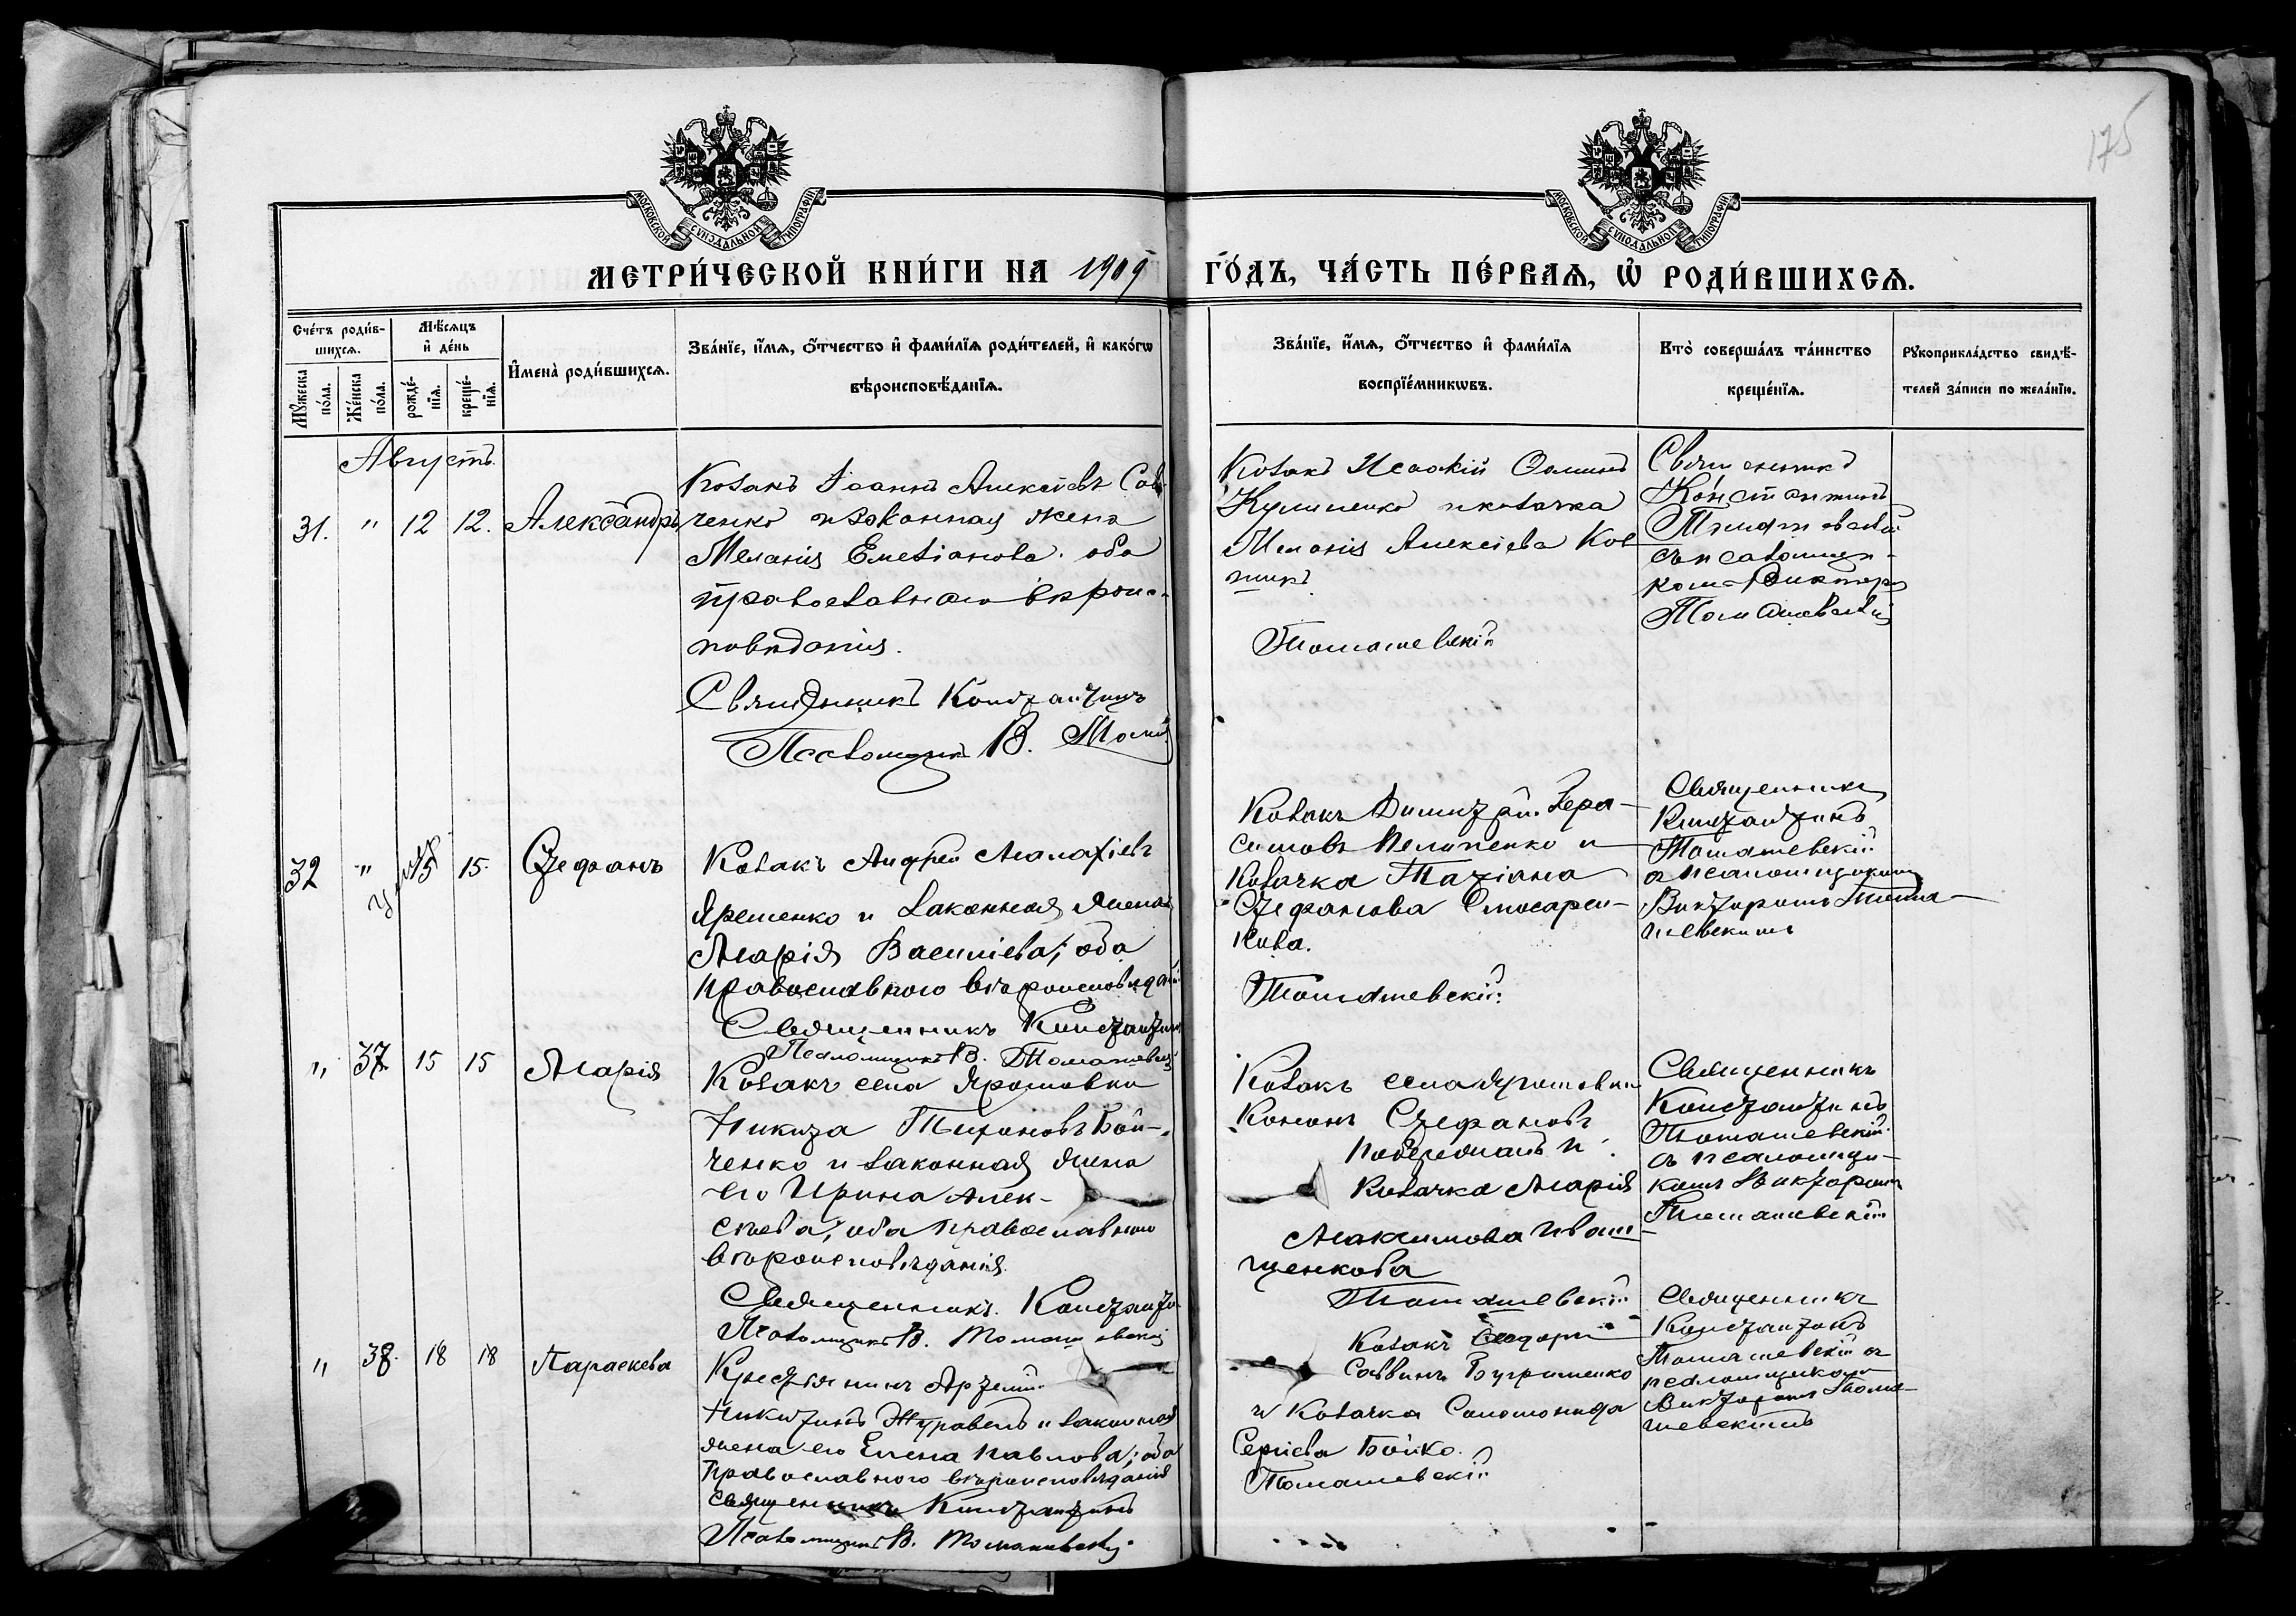 175
МОСКОВСКОЙ СѴНОДАЛЬНОЙ ТИПОГРАФІИ
МОСКОВСКОЙ СѴНОДАЛЬНОЙ ТИПОГРАФІИ
МЕТРИ́ЧЕСКОЙ КНИ́ГИ НА 1909 ГО́ДЪ, ЧА́СТЬ ПЕ́РВАѦ, Ѡ҆ РОДИ́ВШИХСѦ.
Сче́тъ роди́в-
шихсѧ.
Мꙋ́жеска по́ла.
Же́нска по́ла.
Мѣ́сѧцъ
и҆ де́нь
рожде́-
нїѧ.
креще́-
нїѧ.
И҆мена̀ роди́вшихсѧ.
Зва́нїе, и҆́мѧ, ѻ҆́тчество и҆ фами́лїѧ роди́телей, и҆ како́гѡ
вѣроисповѣ́данїѧ.
Зва́нїе, и҆́мѧ, ѻ҆́тчество и҆ фами́лїѧ
воспрїе́мникѡвъ.
Кто̀ соверша́лъ та́инство
креще́нїѧ.
Рꙋкоприкла́дство свидѣ́-
телей за́писи по жела́нїю.
Августъ.
31. " 12 12. Александръ
Козакъ Іоаннъ Алексѣевъ Сав-
ченко и законная жена
Меланія Емеліанова. оба
православнаго вѣроис-
повѣданія.
Священникъ Константинъ
Псаломщикъ В.
Козакъ Исаакій
и козачка
Меланія Алексіева
Томашевскій
Священникъ
Константинъ
Томашевскій
съ псаломщи-
комъ Викторомъ
Томашевскій
32 " 15 15. Стефанъ
Козакъ Андрей Малахіевъ
Яременко и законная жена
Марія Василіева; оба
православного вѣроисповѣдані
Священникъ Константинъ
Псаломщикъ В. Томашевскій
Козакъ Димитрій Гера-
симовъ Пелипенко и
Козачка Татіана
Стефанова Слюсарен-
кова.
Томашевскій
Священникъ
Константинъ
Томашевскій
съ псаломщикомъ
Викторомъ Тома-
шевскимъ
" 37 15 15 Марія
Козакъ села Ярошовки
Никита Тихоновъ Бой-
ченко и законная жена
его Ирина Алек-
сѣева; оба православного
вѣроисповѣданія.
Священникъ Константи
Псаломщикъ В. Томашевскій
Козакъ села Ярошовки
Кононъ Стефановъ
и
Козачка Марія
Максимова Иваш-
ченкова
Томашевскій
Священникъ
Константинъ
Томашевскій
съ псаломщи-
комъ Викторомъ
Томашевскій
" 38. 18 18 Параскева
Крестьянинъ Артемій
Никитинъ Журавель и законная
жена его Елена Павлова; оба
Православного вѣроисповѣданія
священникъ Константинъ
Псаломщикъ В. Томашевскій
Козакъ
Саввинъ
и Козачка Соломонида
Сергіева Бойко.
Томашевскій
Священникъ
Константинъ
Томашевскій съ
псаломщикомъ
Викторомъ Тома-
шевскимъ